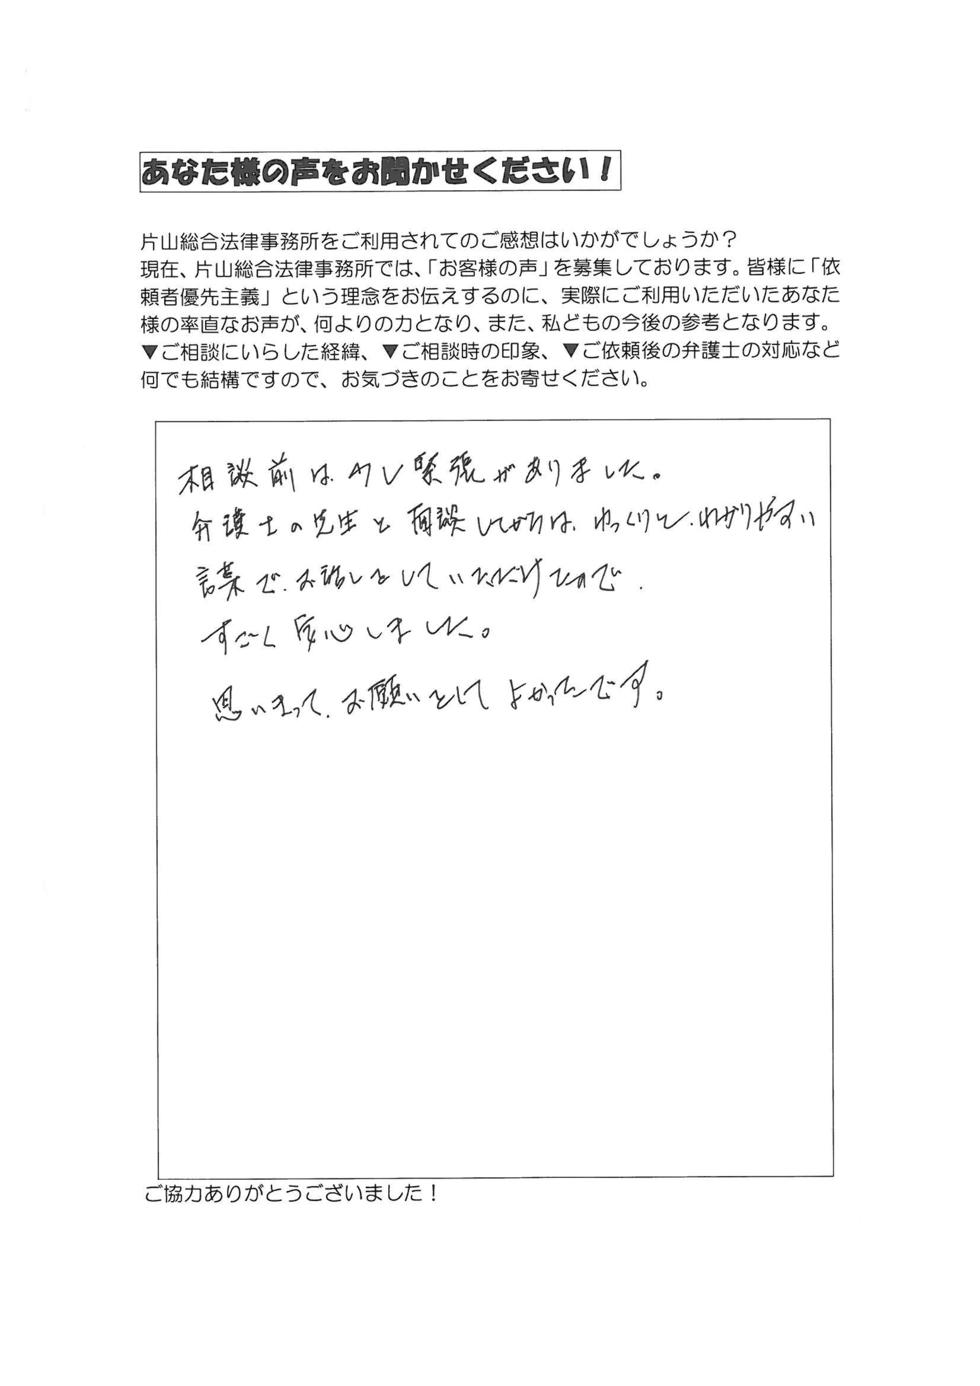 あなた様の声をお聞かせください！
片山総合法律事務所をご利用されてのご感想はいかがでしょうか？
現在、片山総合法律事務所では、「お客様の声」を募集しております。皆様に「依
頼者優先主義」という理念をお伝えするのに、実際にご利用いただいたあなた
様の率直なお声が、何よりの力となり、また、私どもの今後の参考となります。
▼ご相談にいらした経緯、▼ご相談時の印象、▼ご依頼後の弁護士の対応など
何でも結構ですので、お気づきのことをお寄せください。
相談前は少し緊張がありました。
弁護士の先生と面談してからは、ゆっくりと、わかりやすい
言葉で、お話しをしていただけたので、
すごく安心しました。
思いきって、お願いをしてよかったです。
ご協力ありがとうございました！